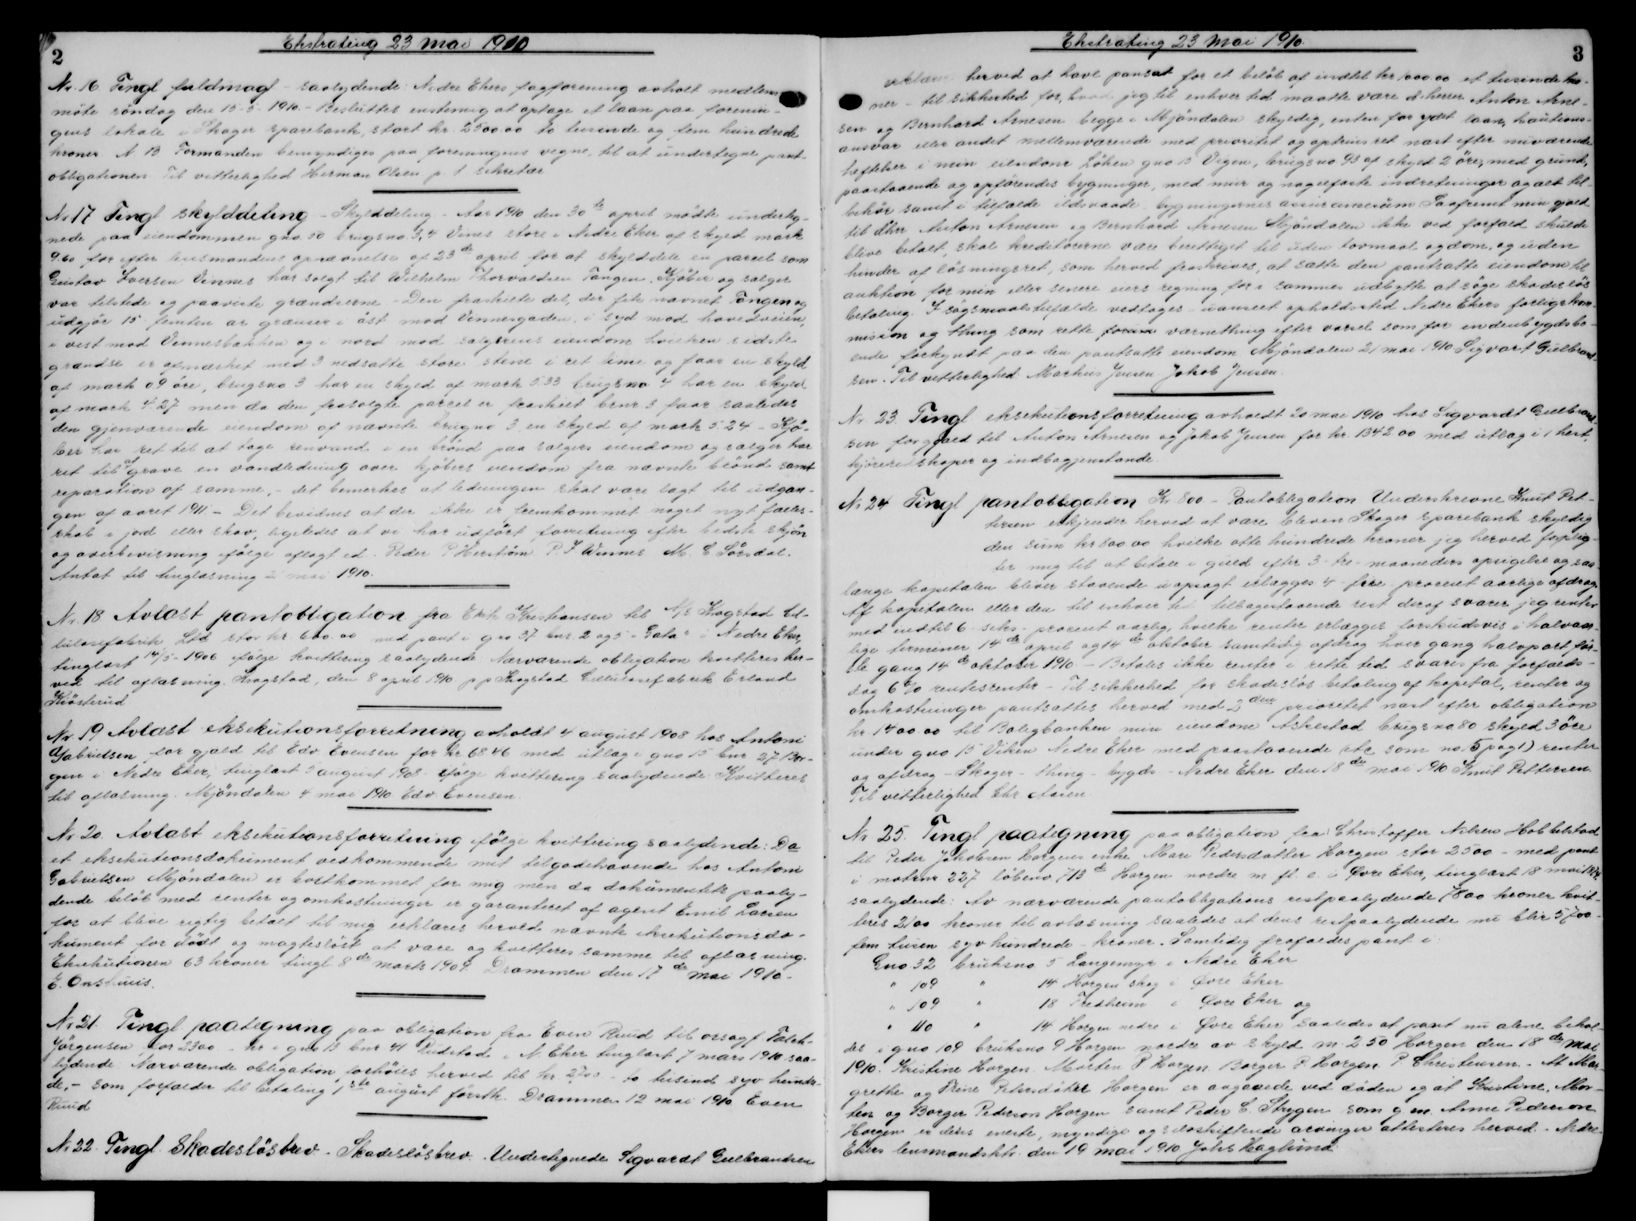 Ekstrating 23 mai 1910
2
Nr. 16 Tingl fuldmagt - saalydende: Nedre Ekers fagforening avholt medlems
möte söndag den 15-5-1910 - Besluttet enstemmig at optage et laan paa forenin-
gens lokale i Skoger sparebank, stort kr. 2500.00 to tusinde og fem hundrede
kroner N B Formanden bemyndiges paa foreningens vegne til at undertegne pant-
obligationen Til vitterlighed Herman Olsen p t sekretær
Nr 17 Tingl skylddeling - Skylddeling - Aar 1910 den 30te april mödte underteg-
nede paa eiendommen gno 50 brugsno 3, 4 Vinnes store i Nedre Eker af skyld mark
9.60, for efter lensmandens opnævnelse af 23de april for at skylddele en parcel som
Gustav Iversen Vinnes har solgt til Wilhelm Thorvaldsen Tangen. Kjöber og sælger
var tilstede og paaviste grændserne - Den fraskilte del, der fik navnet Tangen og
udgjör 15 femten ar grænser i öst mod Vinnesgaden, i syd mod hovedveien,
i vest mod Vinnesbakken og i nord mod sælgerens eiendom hvilken sidste
grændse er afmærket med 3 nedsatte store stene i ret linie og faar en skyld
af mark 09 öre, brugsno 3 har en skyld af mark 5.33 brugsno 4 har en skyld
af mark 4.27 men da den frasolgte parcel er fraskilt brnr 3 faar saaledes
den gjenværende eiendom af nævnte brugno 3 en skyld af mark 5.24 - Kjö-
ber har ret til at tage renvand i en brönd paa sælgers eiendom og sælger har
ret til at grave en vandledning over kjöbers eiendom fra nævnte brönd samt
reparation af samme, - det bemerkes at ledningen skal være lagt til udgan-
gen af aaret 1911 - Det bevidnes at der ikke er fremkommet noget nyt fælles-
skab i jord eller skov, ligeledes at vi har udfört forretning efter bedste skjön
og overbevisning ifölge aflagt ed. Peder P Herström P I Winnes M. C Sörsdal.
Antat til tinglæsning 2 mai 1910.
Nr. 18 Avlæst pantobligation fra Erik Kristiansen til A/S Krogstad Cel-
lulosefabrik Ltd stor kr 600.00 med pant i gno 37 bnr 2 og 5 - Gata i Nedre Eker,
tinglæst 14/5-1906 ifölge kvittering saalydende Nærværende obligation kvitteres her-
ved til aflæsning Krogstad, den 8 april 1910 p p Krogstad Cellulosefabrik Erland
Kiösterud
Nr. 19 Avlæst eksekutionsforretning avholdt 4 august 1908 hos Antoni
Gabrielsen for gjæld til Edv Evensen for kr 68.46 med utlæg i gno 15 bnr 27
gen i Nedre Eker, tinglæst 5 august 1908 ifölge kvittering saalydende Kvitteres
til aflæsning. Mjöndalen 4 mai 1910 Edv Evensen.
Nr 20 Avlæst eksekutionsforretning ifölge kvittering saalydende: Da
et eksekutionsdokument vedkommende mit tilgodehavende hos Antoni
Gabrielsen Mjöndalen er bortkommet for mig men da dokumentets paaly-
dende belöb med renter og omkostninger er garanteret af agent Emil Larsen
for at blive rigtig betalt til mig erklæres herved nævnte eksekutionsdo-
kument for dödt og magteslöst at være og kvitteres samme til aflæsning.
Eksekutionen 63 kroner tingl 8de marts 1909. Drammen den 17de mai 1910.
E. Onshuus.
Nr 21. Tingl paategning paa obligation fra Even Ruud til
Jörgensen stor 2300 - kr i gno 13 bnr 41 Rudstad i N. Eker tinglæst 7 mars 1910 saa-
lydende Nærværende obligation forhöies herved til kr 2700 - to tusinde syv hundre-
de, - som forfalder til betaling 1ste august förstk. Drammen 12 mai 1910 Even
Ruud
Nr 22. Tingl Skadeslösbrev - Skadeslösbrev. Undertegnede Sigvardt Gulbrandsen
Ekstrating 23 Mai 1910.
3
erklærer herved at have pantsat for et belöb af indtil kr 1000.00 et tusinde kro-
ner - til sikkerhed for, hvad jeg til enhver tid maatte være d'herrer Anton Arne-
sen og Bernhard Arnesen begge i Mjöndalen skyldig, enten for ydet laan, kautions-
ansvar eller andet mellemværende med prioritet og optrinsret næst efter nuværende
heftelser i min eiendom Löken gno 13 Vegen, brugsno 93 af skyld 2 öre, med grund,
paastaaende og opförendes bygninger, med mur og naglefaste indretninger og alt til-
behör samt i tilfælde ildsvaade bygningernes assurancesum Saafremt min gjæld
til d'hr Anton Arnesen og Bernhard Arnesen Mjöndalen ikke ved forfald skulde
blive betalt, skal kreditorerne være berettiget til uden lovmaal og dom, og uden
hinder af lösningsret, som herved fraskrives, at sætte den pantsatte eiendom til
auktion for min eller senere eiers regning for i sammes udbytte at söge skadeslös
betaling. I sögsmaalstilfælde vedtages - uanseet opholdssted Nedre Ekers forligskom-
mision og thing som rette værnething efter varsel som for indenbygdsbo-
ende forkyndt paa den pantsatte eiendom Mjöndalen 21 mai 1910 Sigvart Gulbrand-
sen. Til vitterlighed. Markus Jensen Jakob Jensen.
Nr. 23. Tingl eksekutionsforretning avholdt 20 mai 1910 hos Sigvardt Gulbrand-
sen for gjæld til Anton Arnesen og Jakob Jensen for kr. 1342.00 med utlæg i 1 hest
kjöreredskaper og indbogjenstande.
Nr 24 Tingl pantobligation Kr 800 - Pantobligation Underskrevne Knut Pet-
tersen erkjender herved at være bleven Skoger sparebank skyldig
den sum kr 800.00 hvilke otte hundrede kroner jeg herved forplig-
ter mig til at betale i guld efter 3 - tre - maaneders opsigelse og saa-
længe kapitalen bliver staaende uopsagt erlægges 4 - fire - procent aarlige afdrag.
Af kapitalen eller den til enhver tid tilbagestaaende rest deraf svarer jeg renter
med indtil 6 - seks - procent aarlig, hvilke renter erlægges forskudsvis i halvaar-
lige terminer 14de april og 14de oktober samtidig afdrag hver gang halvpart för-
ste gang 14de oktober 1910 - Betales ikke renter i rette tid svares fra forfalds-
dag 6 % rentesrenter - Til sikkerhed for skadeslös betaling af kapital, renter og
omkostninger pantsættes herved med 2den prioritet næst efter obligation
kr 1400.00 til Boligbanken min eiendom Askestad brugsno 80 skyld 3 öre
under gno 15 Viken Nedre Eker med paastaaende (etc som no 5 pag 1) renter
og afdrag - Skoger - thing - bygds - Nedre Eker den 18de mai 1910 Knut Pettersen.
Til vitterlighed Chr Aasen
Nr 25. Tingl paategning paa obligation fra Christoffer Nilsen Hobbelstad
til Peder Jakobsen Horgens enke Mari Pedersdatter Horgen stor 2500 - med pant
i matrnr 227 löbeno 713 Horgen nordre m fl e i Övre Eker, tinglæst 18 mai
saalydende: Av nærværende pantobligations restpaalydende 7800 kroner kvit-
teres 2100 kroner til avlæsning saaledes at dens restpaalydende nu blir 5700 -
fem tusen syv hundrede - kroner. Samtidig frafaldes pant i:
Gno 32 bruksno 5 Langemyr i Nedre Eker
" 109 " 14 Horgen skog i Övre Eker
" 109 " 18 Fredheim i Övre Eker og
" 110 " 14 Horgen nedre i Övre Eker saaledes at pant nu alene behol-
des i gno 109 bruksno 9 Horgen nordre av skyld m 2.50 Horgen den 18de mai
1910. Kristine Horgen Morten P Horgen Borger P. Horgen P Christensen. - At Mar-
grethe og Pedersdatter Horgen er avgaaede ved döden og at Kristine, Mor-
ten og Borger Pedersen Horgen samt Peder C. Strygen som g m Anne Pedersen
Horgen er dens eneste, myndige og selvskiftende arvinger attesteres herved. - Nedre
Ekers lensmandskt. den 19 mai 1910 Johs Haglund